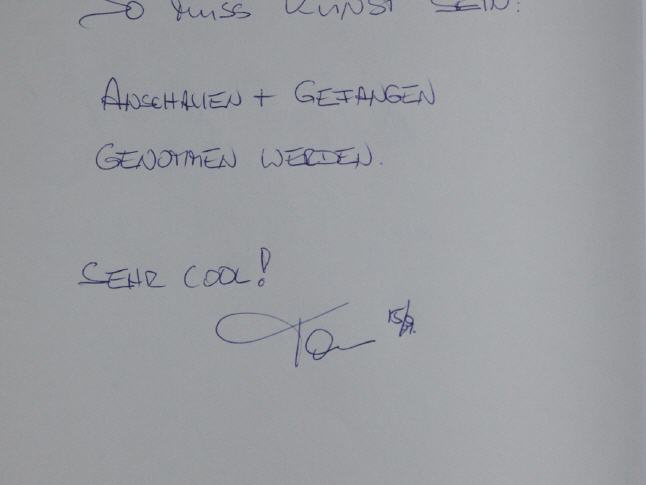 SO MUSS KUNST SEIN:
ANSCHAUEN + GEFANGEN
GENOMMEN WERDEN.
SEHR COOL!
Tom 15/9.